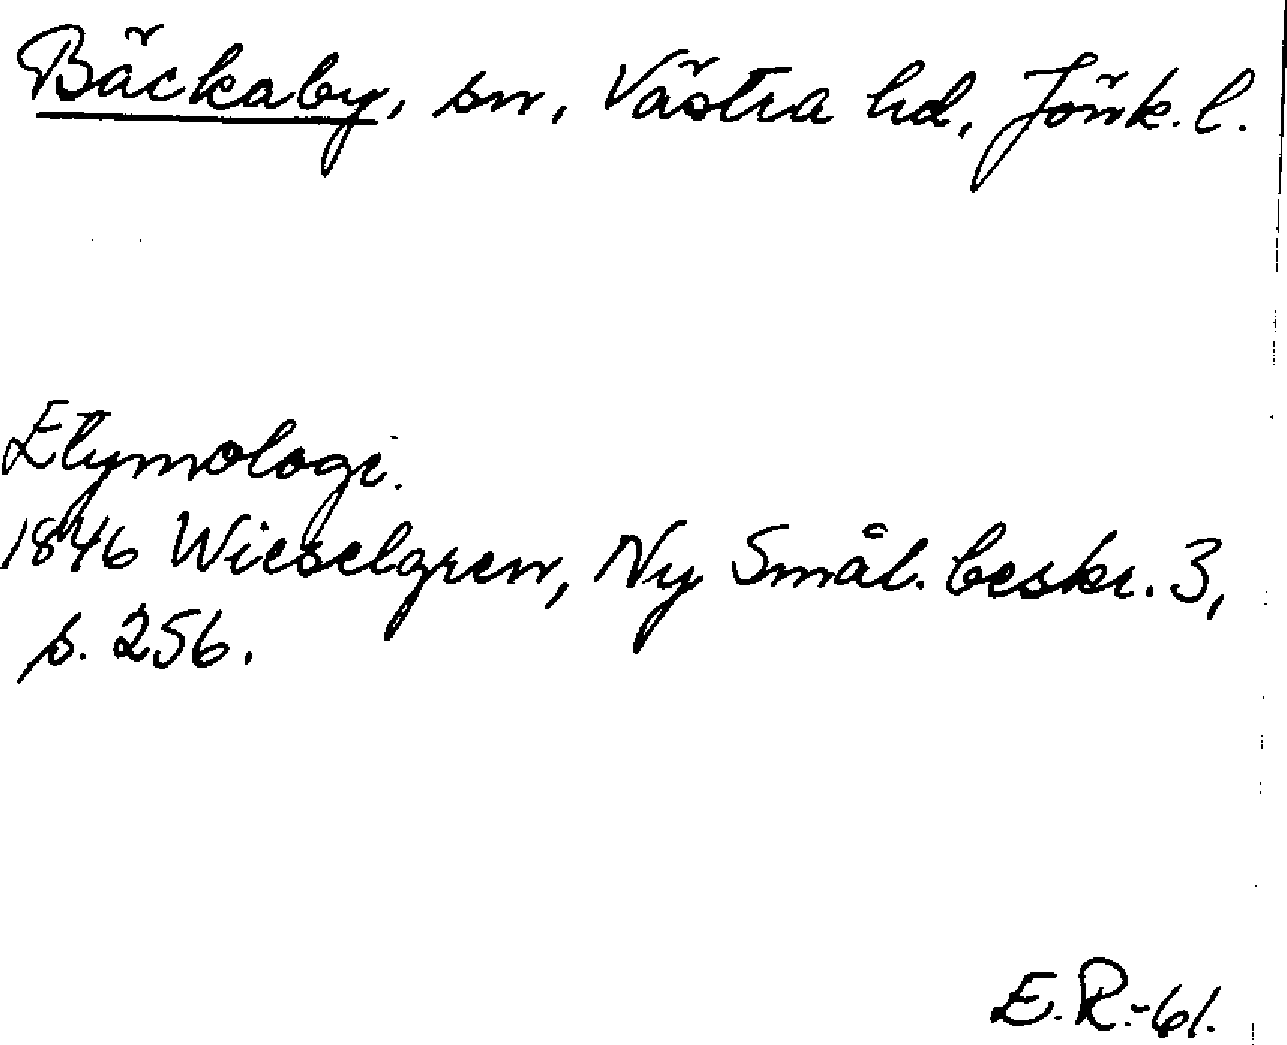 Bäckaby, sn, Västra hd, Jönk. l.
Etymologi.
1846 Wieselgren, Ny Smål. beskr. 3,
s. 256.
E.R.-61.